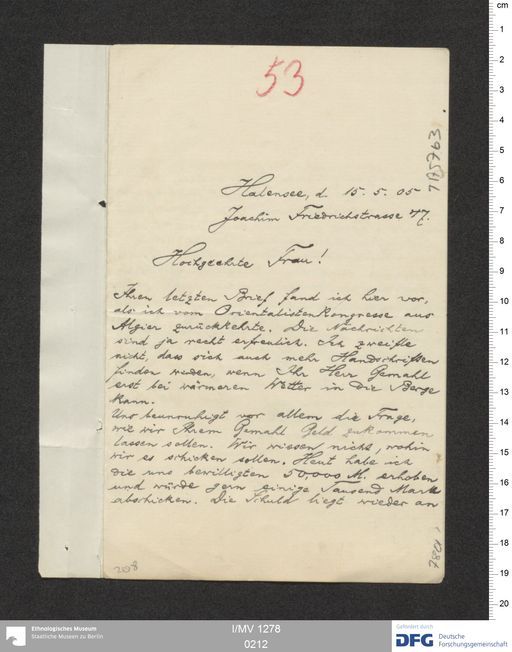 53
7175763
Halensee, d. 15. 5. 05
Joachim Friedrichstrasse 47.
Hochgeehrte Frau!
Ihren letzten Brief fand ich hier vor,
als ich vom Orientalistenkongresse aus
Algier zurückkehrte. Die Nachrichten
sind ja recht erfreulich. Ich zweifle
nicht, dass sich auch mehr Handschriften
finden werden, wenn Ihr Herr Gemahl
erst bei wärmeren Wetter in die Berge
kann.
Uns beunruhigt vor allem die Frage,
wie wir Ihrem Gemahl Geld zukommen
lassen sollen. Wir wissen nicht, wohin
wir es schicken sollen. Heut habe ich
die uns bewilligten 50,000 M. erhoben
und würde gern einige Tausend Mark
abschicken. Die Schuld liegt wieder an
208
cm
1
2
3
4
5
6
7
8
9
10
11
12
13
14
15
16
17
18
19
20
Ethnologisches Museum
Staatliche Museen zu Berlin
I/MV 1278
0212
Gefördert durch
DFG
Deutsche
Forschungsgemeinschaft